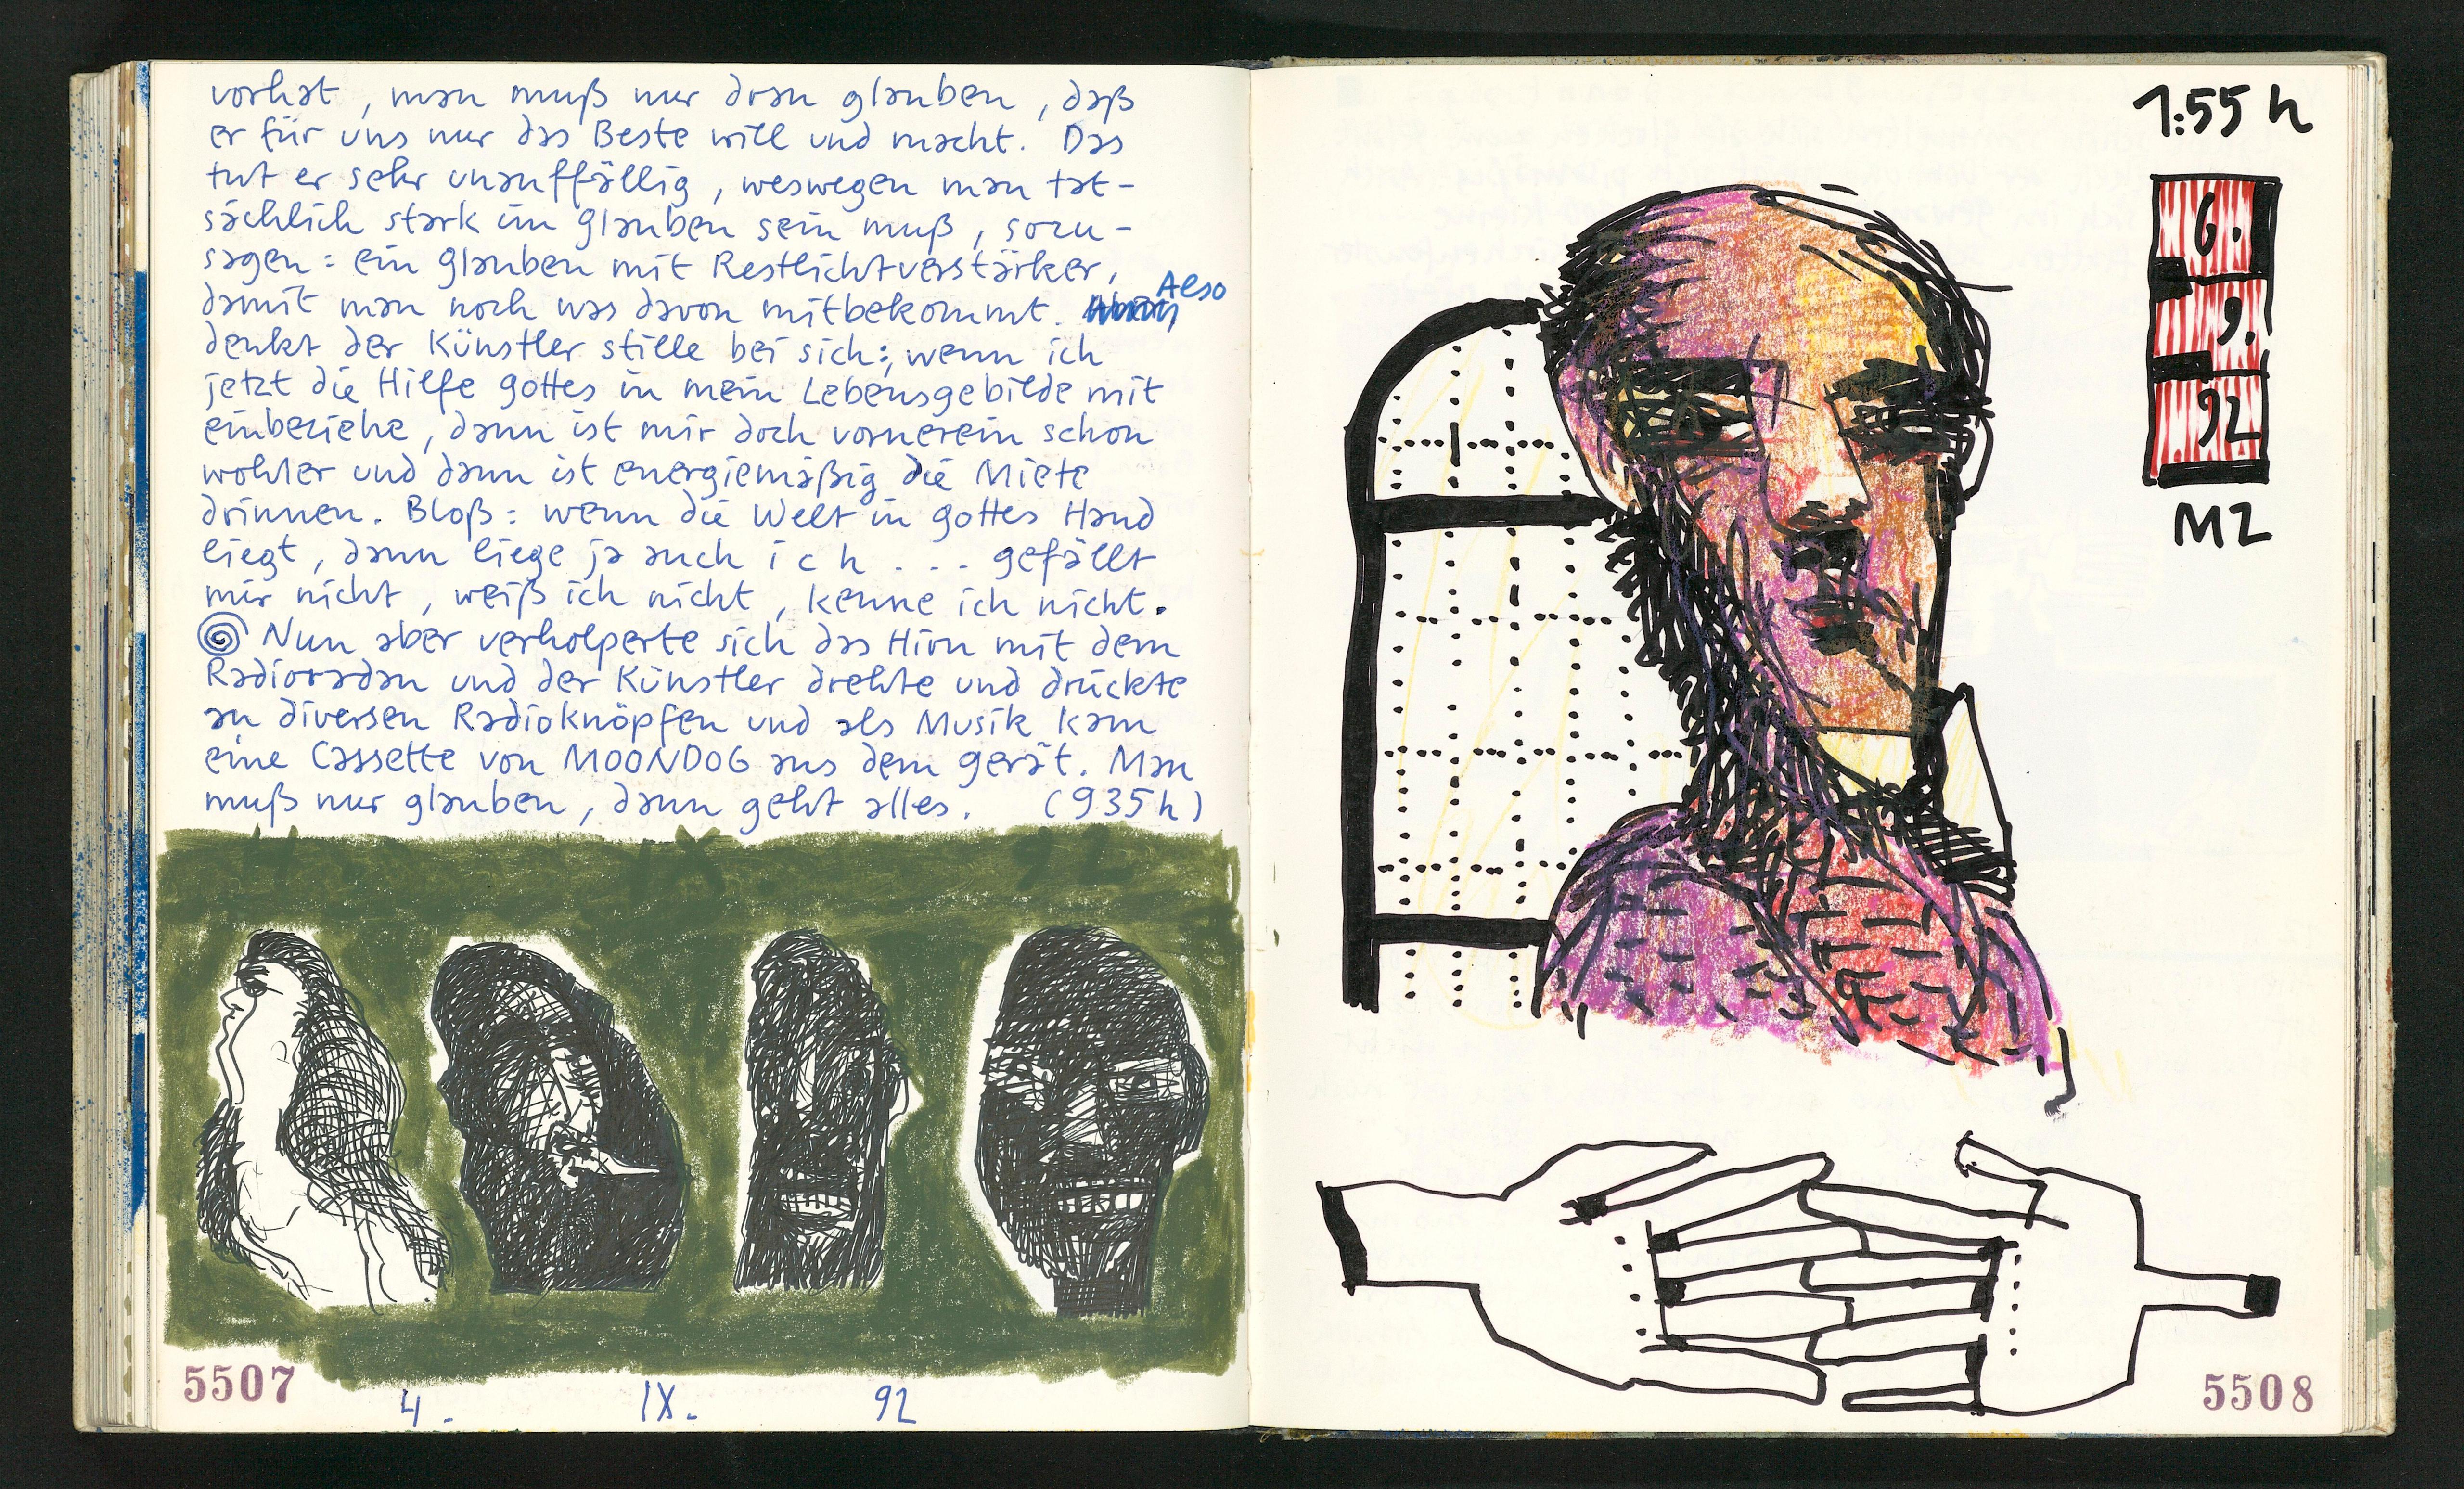 vorhat, man muß nur dran glauben, daß
er für uns nur das Beste will und macht. Das
tut er sehr unauffällig, weswegen man tat-
sächlich stark im glauben sein muß, sozu-
sagen: ein glauben mit Restlichtverstärker,
damit man noch was davon mitbekommt. Also
denkt der Künstler stille bei sich: wenn ich
jetzt die Hilfe gottes in mein Lebensgebilde mit
einbeziehe, dann ist mir doch vornerein schon
wohler und dann ist energiemäßig die Miete
drinnen. Bloß: wenn die Welt in gottes Hand
liegt, dann liege ja auch i c h . . . gefällt
mir nicht, weiß ich nicht, kenne ich nicht.
Nun aber verholperte sich das Hirn mit dem
Radioradau und der Künstler drehte und drückte
an diversen Radioknöpfen und als Musik kam
eine Cassette von MOONDOG aus dem gerät. Man
muß nur glauben, dann geht alles. (935h)
5507
4. IX. 92
1:55 h
6.
9.
92
MZ
5508